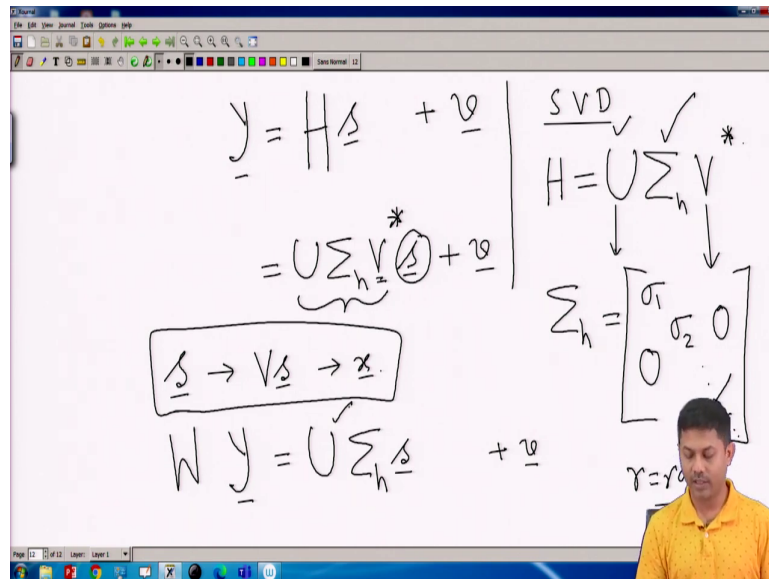 Xournal
File Edit View Journal Tools Options Help
Sans Normal 12
y = H s + v
= U Σ_h V* s + v
s → V s → x.
W y = U Σ_h s + v
S V D
H = U Σ_h V*
Σ_h = [ σ_1 σ_2 0 0 ⋱ ]
r =
Page 12 of 12 Layer: Layer 1